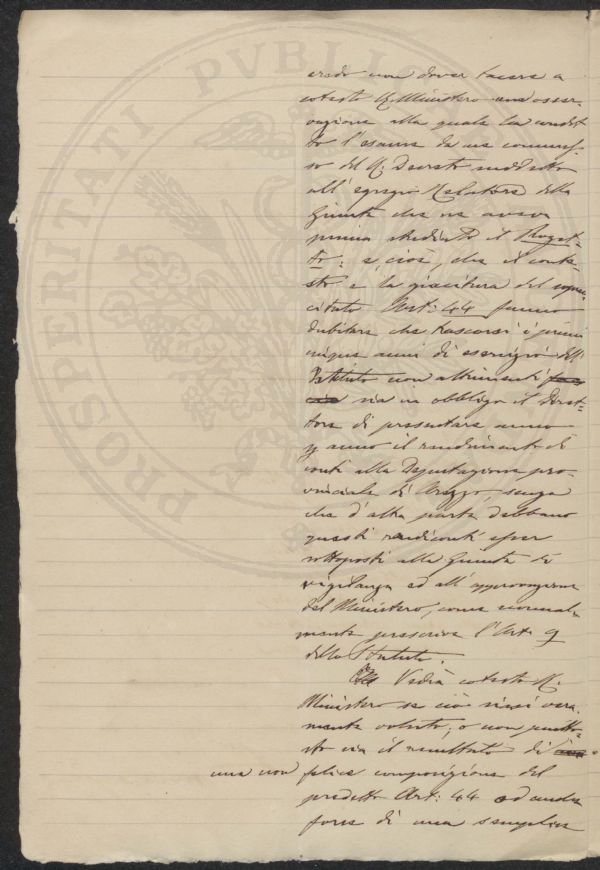 PROSPERITATI PVBLICAE
credo non dover tacere a
cotesto R. Ministero una osser-
vazione alla quale ha condot-
to l'esame da me commes-
so del R. Decreto suddetto
all'egregio Relatore della
Giunta che ne aveva
prima studiato il Proget-
to: e cioè, che il conte-
sto e la giacitura del sopra
citato Art: 44 fanno
dubitare che trascorsi i primi
cinque anni di esercizio dell'
Istituto non altrimenti
sia in obbligo il Diret-
tore di presentare anno
p anno il rendimento di
conti alla Deputazione pro-
vinciale di Arezzo, senza
che d'altra parte debbano
questi rendiconti esser
sottoposti alla Giunta di
vigilanza ed all'approvazione
del Ministero, come normal-
mente prescrive l'Art. 9
dello Statuto.
Vedrà cotesto R.
Ministero se ciò siasi vera-
mente voluto; o non piutto-
sto sia il resultato di
una non felice composizione del
predetto Art: 44 ed anche
forse di una semplice